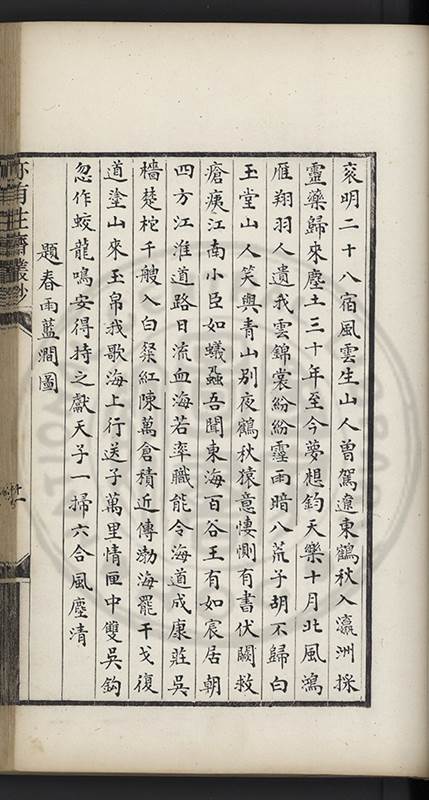 衮明二十八宿風雲生山人曾駕遼東鶴秋入瀛洲採
靈藥歸來塵土三十年至今夢想鈞天樂十月北風鴻
雁翔羽人遺我雲錦裳紛紛靈雨暗八荒子胡不歸白
玉堂山人笑與青山别夜鶴秋猿意悽惻有書伏闕救
瘡痍江南小臣如蟻蝨吾聞東海百谷王有如宸居朝
四方江淮道路日流血海若率職能令海道成康莊吳
檣楚柁千艘入白粲紅陳萬倉積近傳渤海罷干戈復
道塗山來玉帛我歌海上行送子萬里情匣中雙吳鈎
忽作蛟龍鳴安得持之獻天子一掃六合風塵清
題春雨藍澗圖
亦有生齋叢鈔